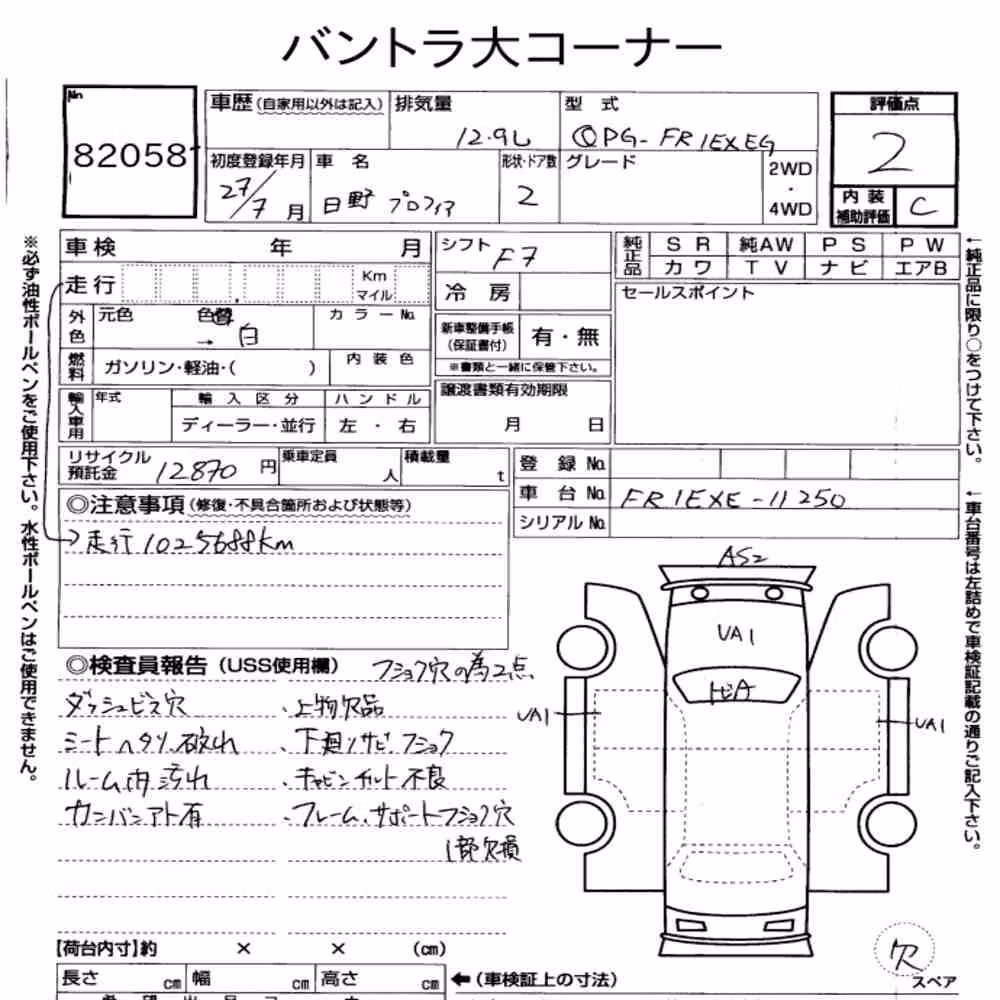 バントラ大コーナー
No 82058
車歴(自家用以外は記入)
排気量 12.9L
型式 QPG-FR1EXEG
評価点 2
初度登録年月 27/7月
車名 日野 プロフィア
形状・ドア数 2
グレード
2WD・4WD
内装補助評価 C
車検 年 月
シフト F7
純正品 SR 純AW PS PW
カワ TV ナビ エアB
走行 Km マイル
冷房
セールスポイント
外色 元色 色替 → 白 カラーNo.
新車整備手帳(保証書付) 有・無
※書類と一緒に保管下さい。
燃料 ガソリン・軽油・( ) 内装色
譲渡書類有効期限
月 日
輸入車用 年式 輸入区分 ハンドル
ディーラー・並行 左・右
リサイクル預託金 12870円
乗車定員 人
積載量 t
登録No.
車台No. FR1EXE-11250
シリアルNo.
◎注意事項(修復・不具合箇所および状態等)
走行1025688km
◎検査員報告(USS使用欄) フショク穴の為2点
ダッシュビス穴 、上物欠品
シートヘタリ、破れ 、下廻リサビフショク
ルーム内汚れ 、キャビンチルト不良
カンバンアト有 、フレーム、サポートフショク穴
1部欠損
AS2
UA1
トビA
UA1
UA1
欠
スペア
【荷台内寸】約 × × (cm)
長さ cm 幅 cm 高さ cm ←(車検証上の寸法)
※必ず油性ボールペンをご使用下さい。水性ボールペンはご使用できません。
←純正品に限り○をつけて下さい。
←車台番号は左詰めで車検証記載の通りご記入下さい。